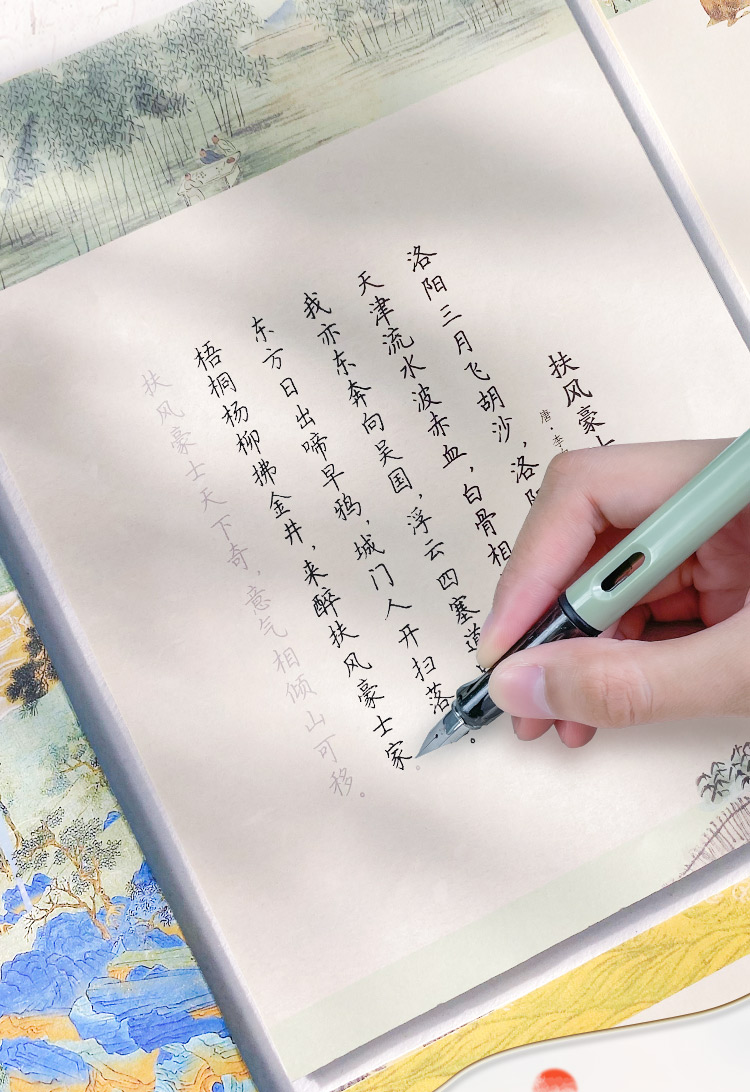 扶风豪士
唐·李
洛阳三月飞胡沙，洛阳
天津流水波赤血，白骨相
我亦东奔向吴国，浮云四塞道
东方日出啼早鸦，城门人开扫落
梧桐杨柳拂金井，来醉扶风豪士家
扶风豪士天下奇，意气相倾山可移。